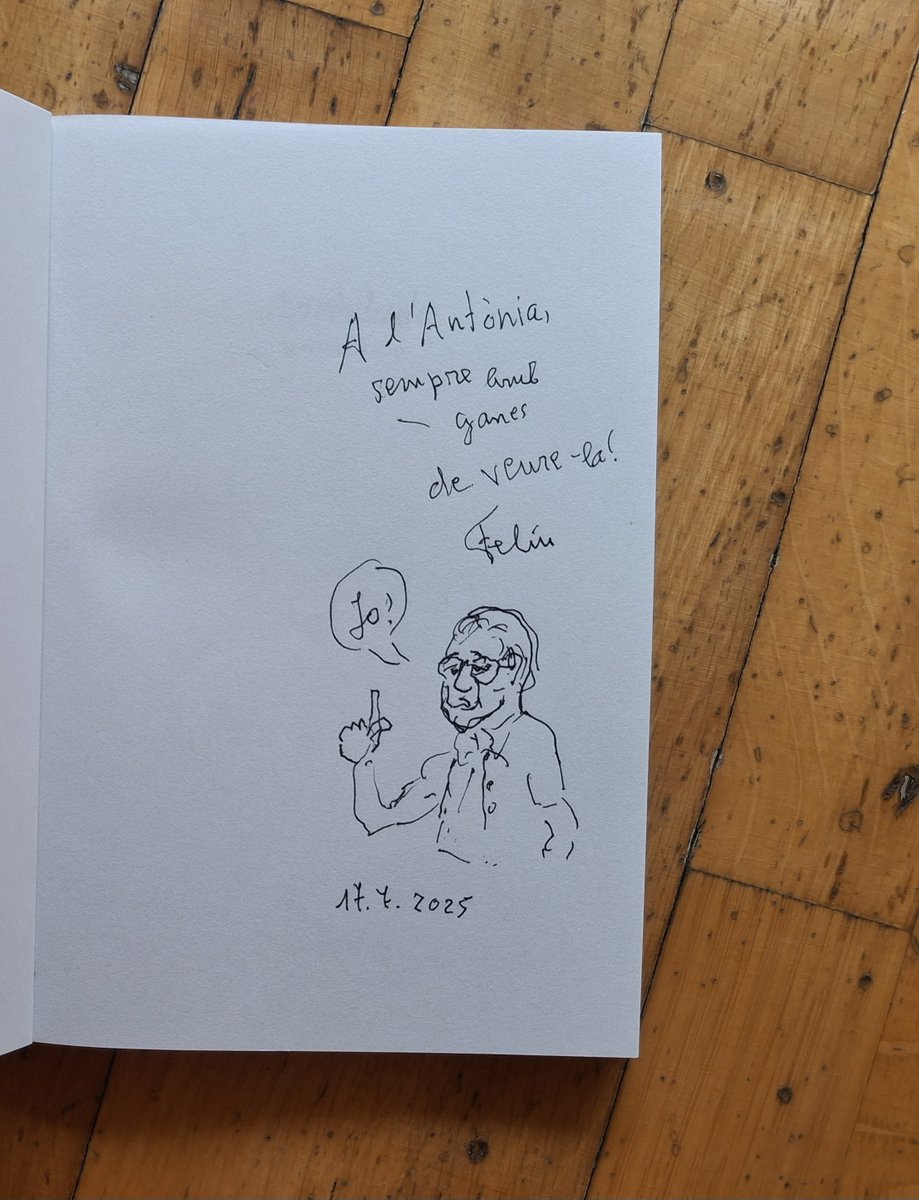 A l'Antònia,
sempre amb
ganes
de veure-la!
Feliu
Jo!
17.7.2025